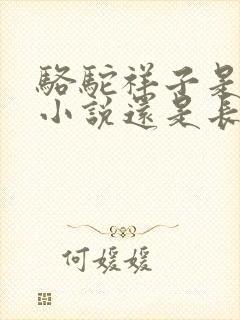 駱駝祥子是
小說還是長
何媛媛